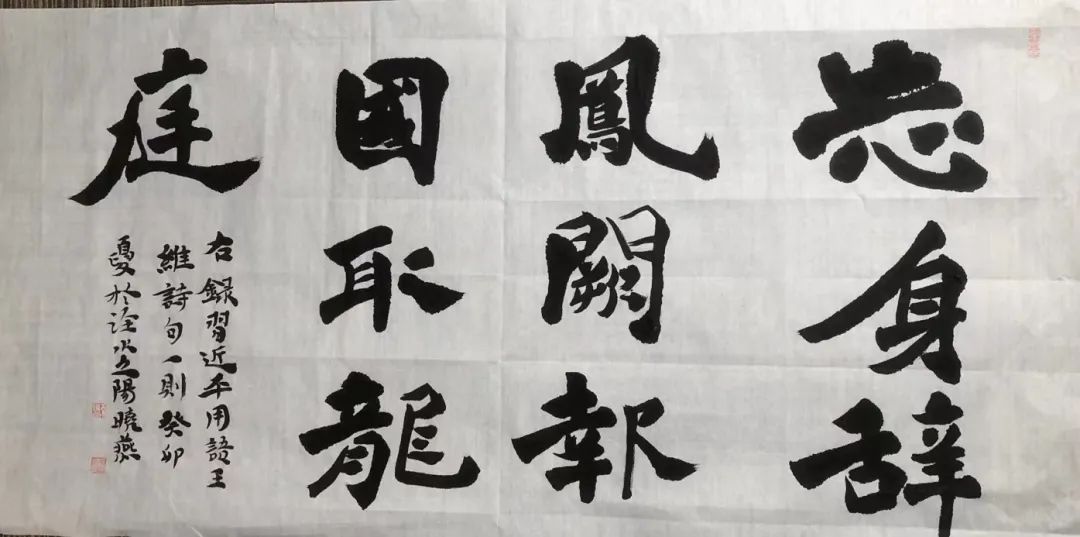 忘身辞
鳳闕報
國取龍
庭
右録習近平用語王
維詩句一則癸卯
夏於水之陽曉燕